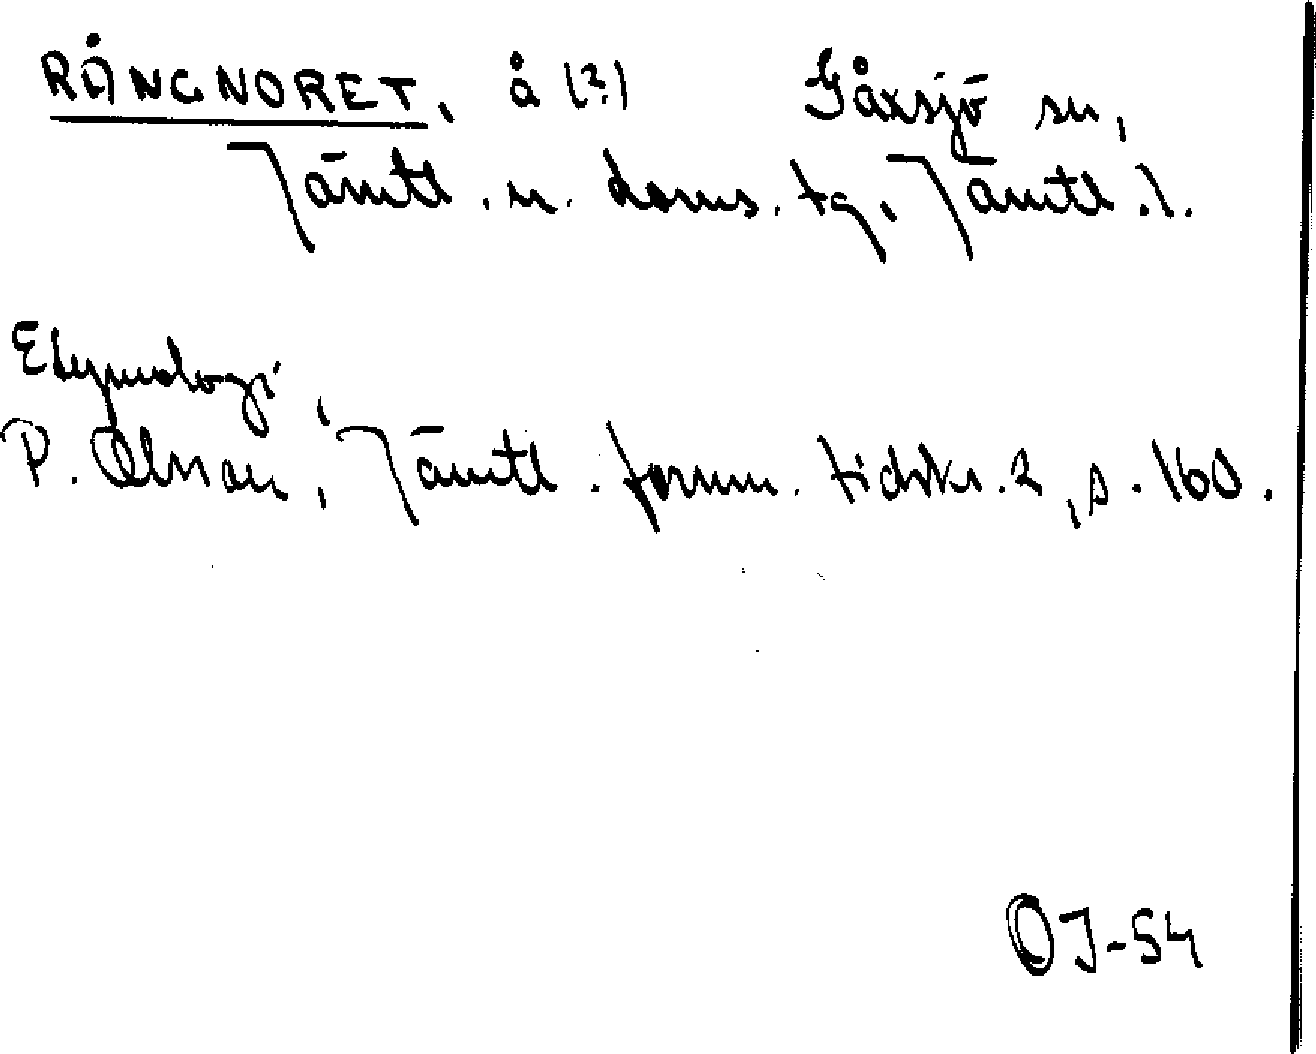 RÅNGNORET, å (?) Gåxsjö sn,
Jämtl. n. doms. tg, Jämtl. l.
Etymologi,
P. Olsson, Jämtl. fornm. tidskr. 2, s. 160.
OJ-54